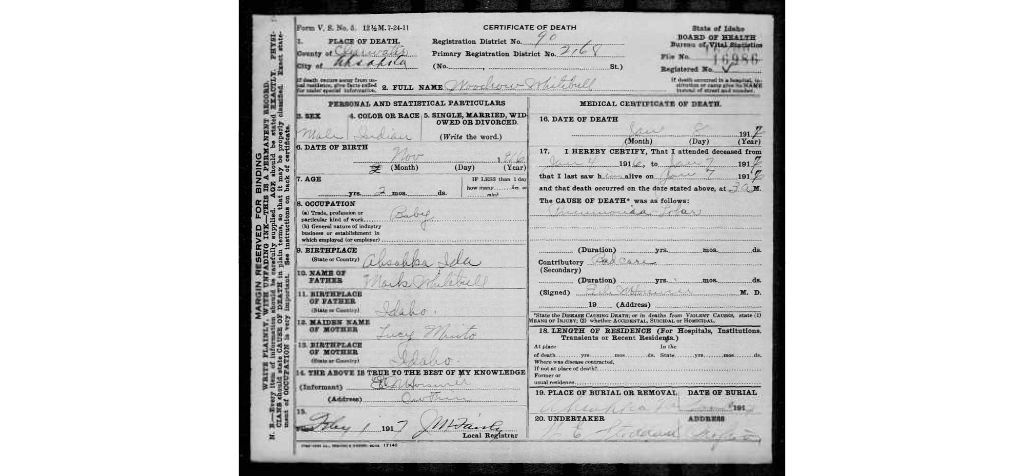 Form V. S. No. 5. 12½M. 7-24-11
CERTIFICATE OF DEATH
State of Idaho
BOARD OF HEALTH
Bureau of Vital Statistics
1. PLACE OF DEATH.
Registration District No. 90
County of Clearwater
Primary Registration District No. 2168
File No. 16986
City of Ahsahka
(No. St.)
Registered No.
If death occurs away from usual residence, give facts called for under special information.
2. FULL NAME Woodrow Whitebull
If death occurred in a hospital, institution or camp give its NAME instead of street and number.
PERSONAL AND STATISTICAL PARTICULARS
3. SEX
4. COLOR OR RACE
5. SINGLE, MARRIED, WIDOWED OR DIVORCED.
Male Indian (Write the word.)
6. DATE OF BIRTH
Nov 1916
(Month) (Day) (Year)
7. AGE
IF LESS than 1 day how many hrs. or min?
yrs. 2 mos. ds.
8. OCCUPATION
(a) Trade, profession or particular kind of work
Baby
(b) General nature of industry business or establishment in which employed (or employer)
9. BIRTHPLACE
(State or Country) Ahsahka Ida
10. NAME OF FATHER Mark Whitebull
11. BIRTHPLACE OF FATHER
(State or Country) Idaho.
12. MAIDEN NAME OF MOTHER Lucy
13. BIRTHPLACE OF MOTHER
(State or Country) Idaho.
14. THE ABOVE IS TRUE TO THE BEST OF MY KNOWLEDGE
(Informant)
(Address)
15.
Feby 1 1917 J M Fairly
Local Registrar
MEDICAL CERTIFICATE OF DEATH.
16. DATE OF DEATH
Jan 8 1917
(Month) (Day) (Year)
17. I HEREBY CERTIFY, That I attended deceased from
Jan 4 1916, to Jan 7 1917
that I last saw him alive on Jan 7 1917
and that death occurred on the date stated above, at 3 A M.
The CAUSE OF DEATH* was as follows:
Pneumonia Lobar
(Duration) yrs. mos. ds.
Contributory Bad care
(Secondary)
(Duration) yrs. mos. ds.
(Signed) M. D.
19 (Address)
*State the DISEASE CAUSING DEATH; or in deaths from VIOLENT CAUSES, state (1) MEANS OF INJURY; (2) whether ACCIDENTAL, SUICIDAL or HOMICIDAL.
18. LENGTH OF RESIDENCE (For Hospitals, Institutions, Transients or Recent Residents.)
At place of death yrs mos ds. In the State yrs mos ds.
Where was disease contracted, If not at place of death?
Former or usual residence
19. PLACE OF BURIAL OR REMOVAL DATE OF BURIAL
Ahsahka 191
20. UNDERTAKER ADDRESS
MARGIN RESERVED FOR BINDING
WRITE PLAINLY, WITH UNFADING INK—THIS IS A PERMANENT RECORD.
N. B.—Every item of information should be carefully supplied. AGE should be stated EXACTLY. PHYSICIANS should state CAUSE OF DEATH in plain terms, so that it may be properly classified. Exact statement of OCCUPATION is very important. See instructions on back of certificate.